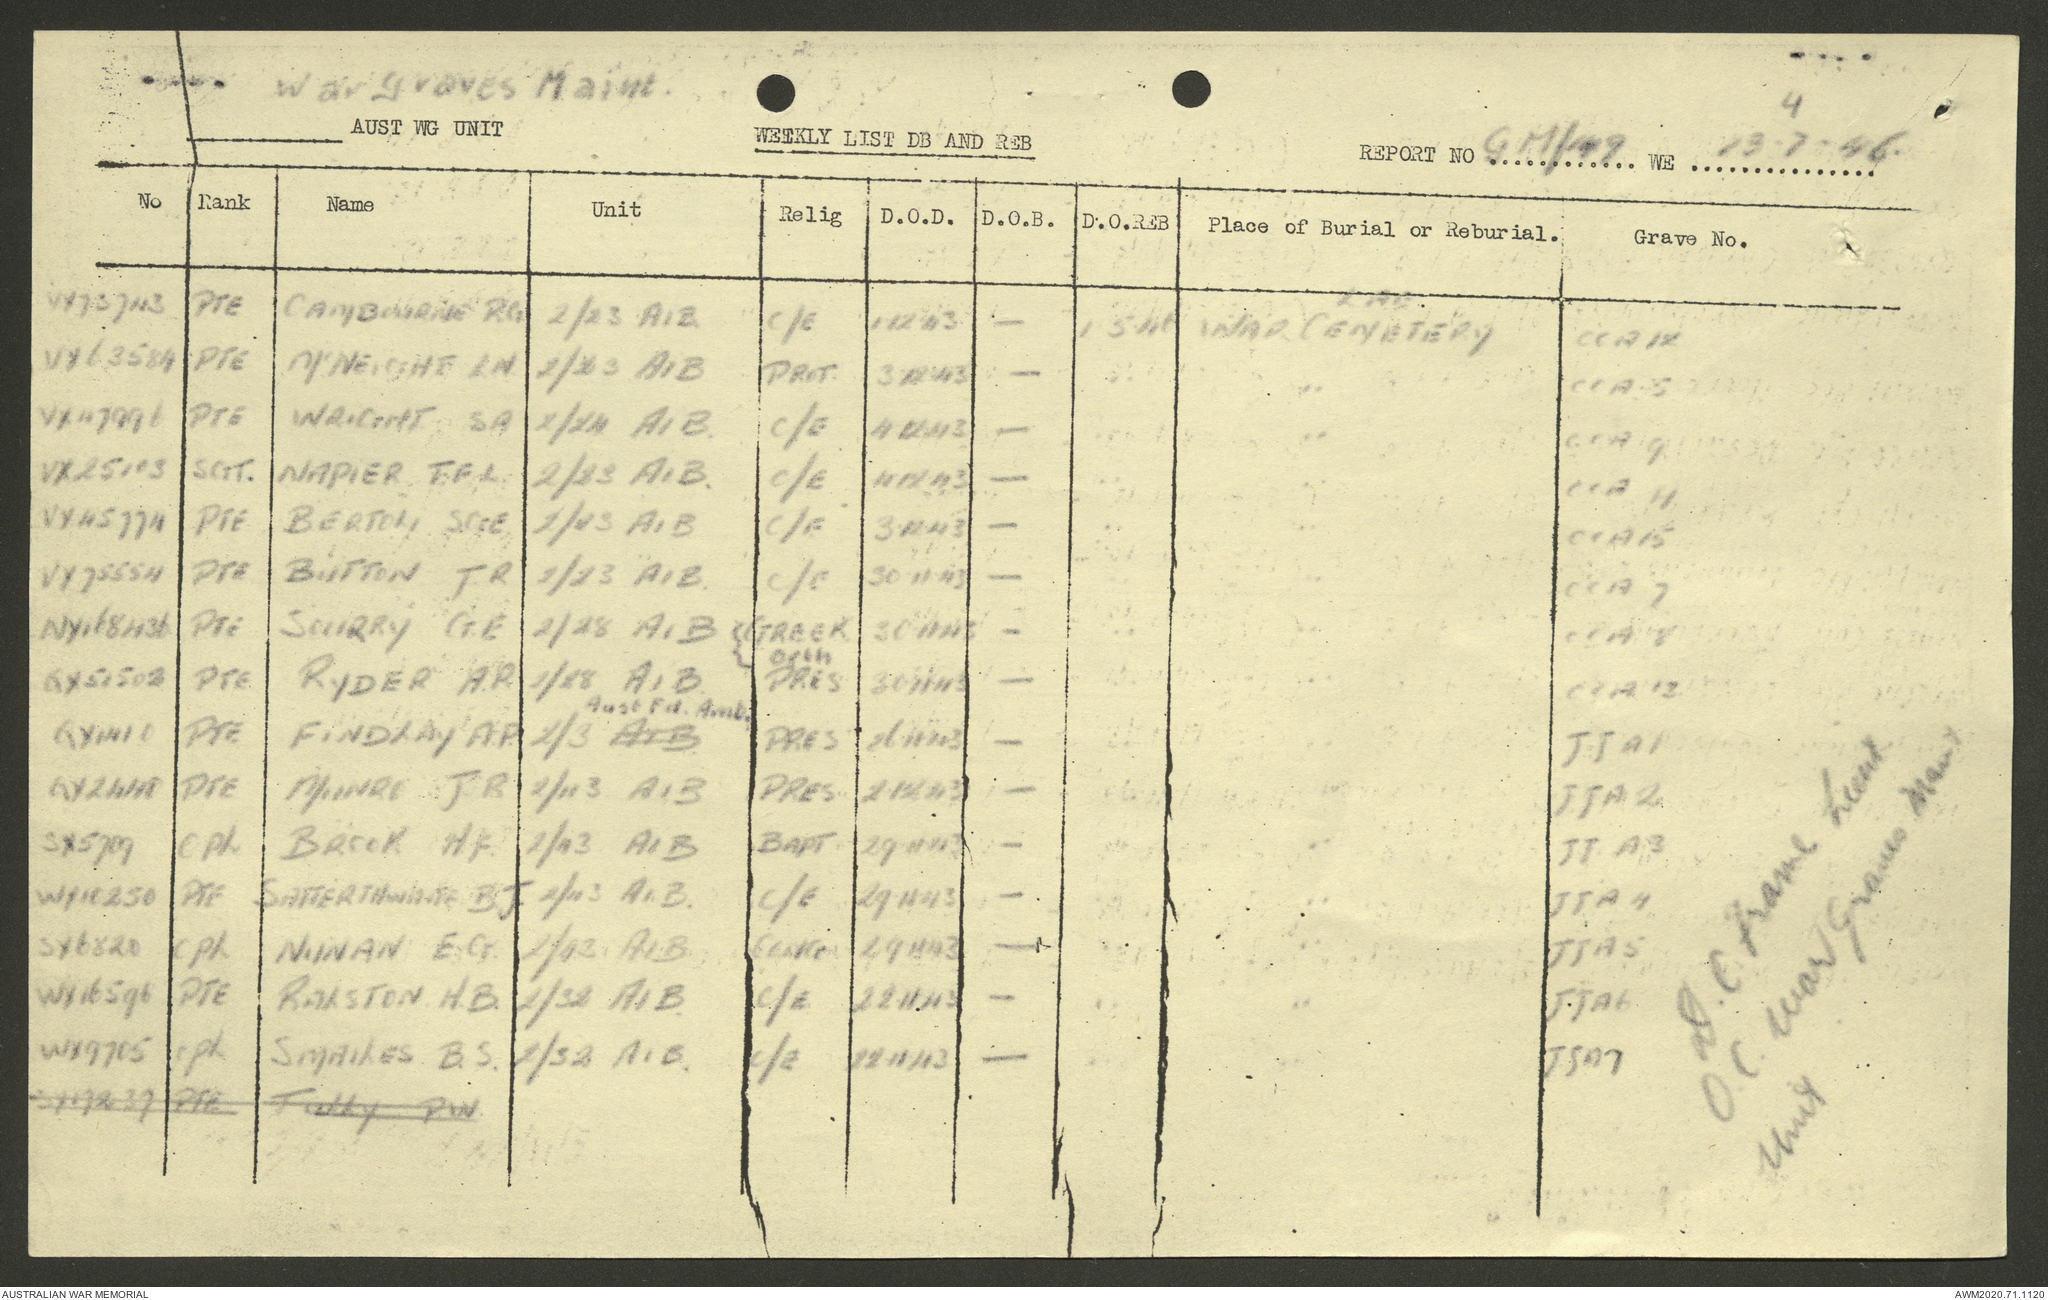 War graves Maint.
AUST WG UNIT
WEEKLY LIST DB AND REB
4
REPORT NO GM/49 WE 13-7-46.
No Rank Name Unit Relig D.O.D. D.O.B. D.O.REB Place of Burial or Reburial. Grave No.
LAE
VX73743 PTE CAMBOURNE R.G 2/23 A.I.B. C/E 1.12.43 — 1.5.46 WAR CEMETERY CCA 12
VX63584 PTE McNEIGHT L.N. 2/23 A.I.B PROT. 3.12.43 — " CCA 5
PTE WRIGHT SA 2/24 A.I.B. C/E 4.12.43 — " CCA 9
VX25103 SGT. NAPIER T.F.L. 2/23 A.I.B. C/E 4.12.43 — " CCA 11
VX45774 PTE BERTOLI 2/23 A.I.B C/E 3.12.43 — " CCA 15
VX75554 PTE BUTTON J.R 2/23 A.I.B. C/E 30.11.43 — " CCA 7
PTE SCURRY G.E 2/28 A.I.B {GREEK Orth 30.11.43 — " CCA 8
QX51502 PTE RYDER A.R. 2/28 A.I.B. PRES 30.11.43 — CCA 13
Aust Fd. Amb.
PTE FINDLAY A.P. 2/3 A.I.B PRES 26.11.43 — JJA 1
PTE MUNRO J.R 2/43 A.I.B PRES 2.12.43 — JJA 2
SX5709 CPL BROOK H.F. 2/43 A.I.B BAPT 29.11.43 — " JJ A3
WX10250 PTE SATTERTHWAITE B.J. 2/43 A.I.B. C/E 29.11.43 — " JJA 4
SX6820 CPL NUNAN E.G. 2/43 A.I.B. 29.11.43 — " JJA 5
WX16596 PTE RALSTON H.B. 2/32 A.I.B. C/E 22.11.43 — " JJA6
WX9705 CPL SMAILES B.S. 2/32 A.I.B. C/E 22.11.43 — JJA7
PTE Tully P.W.
D. C. Frame Lieut
O.C. War Graves Maint
Unit
AUSTRALIAN WAR MEMORIAL
AWM2020.71.1120